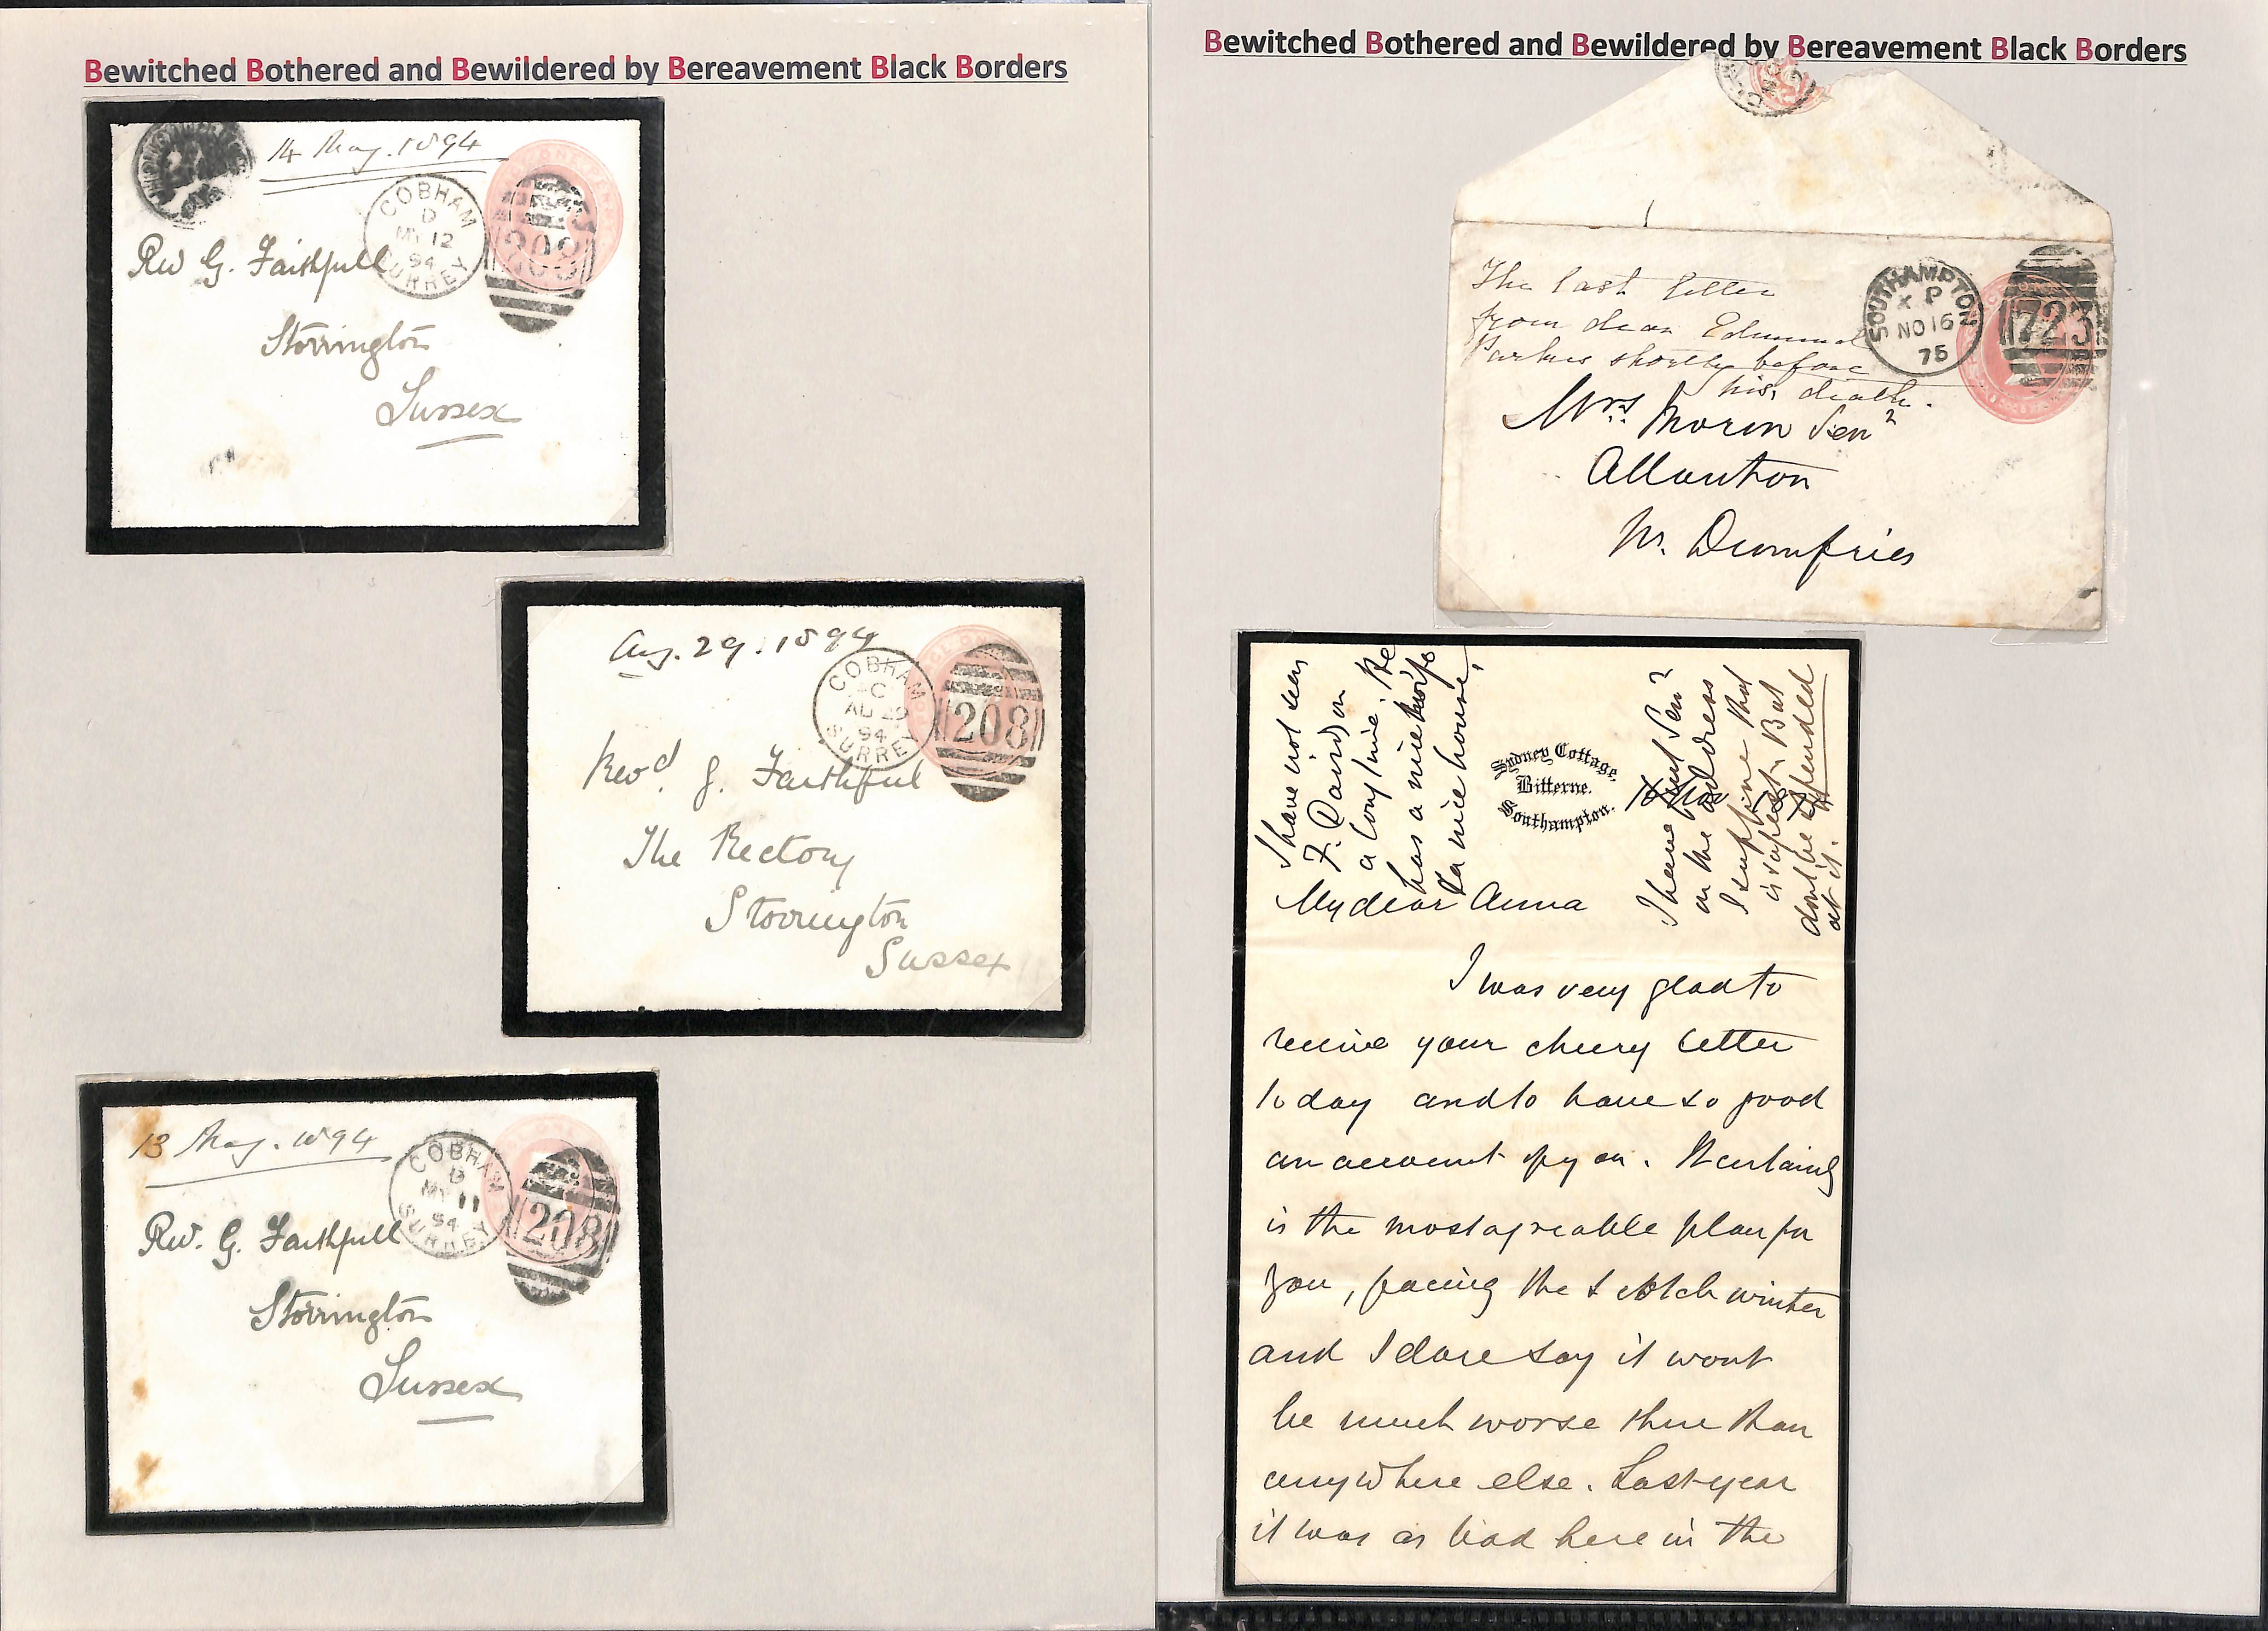 Bewitched Bothered and Bewildered by Bereavement Black Borders
14 May. 1894
COBHAM
D
MY 12
94
SURREY
208
Rev G. Faithfull
Storrington
Sussex
Aug. 29. 1894
COBHAM
C
AU 29
94
SURREY
208
Revd. G. Faithful
The Rectory
Storrington
Sussex
13 May. 1894
COBHAM
D
MY 11
94
SURREY
208
Rev. G. Faithfull
Storrington
Sussex
Bewitched Bothered and Bewildered by Bereavement Black Borders
The last letter
from dear Edmund
Parker shortly before
his death.
SOUTHAMPTON
X P
NO 16
75
723
Mrs. Senr
Allanton
Nr. Dumfries
I have not seen
F. on
a long time. He
has a nice
& a nice house,
Sydney Cottage,
Bitterne.
Southampton.
I have put Senr
on the address
I suppose that
is safest. But
dont be offended
at it.
My dear Anna
I was very glad to
receive your cheery letter
to day and to have so good
an account of you. It certainly
is the most agreable plan for
you, facing the Scotch winter
and I dare say it wont
be much worse there than
anywhere else. Last year
it was as bad here in the